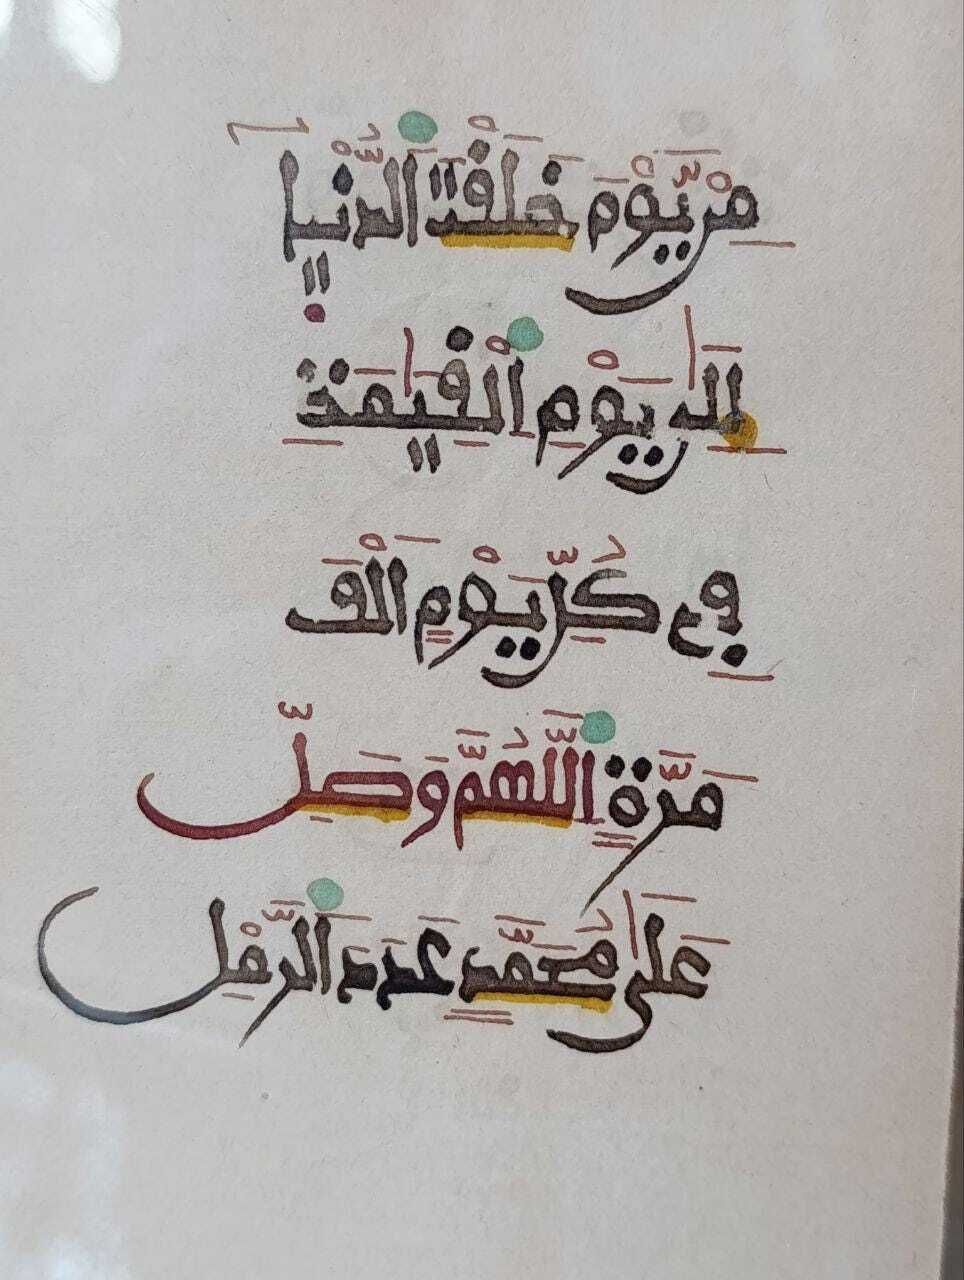 مِنْ يَّوْمِ خَلَقْتَ الدُّنْيَا
إِلَى يَوْمِ الْقِيَمَةِ
فِي كُلِّ يَوْمٍ اَلْفَ
مَرَّةٍ اَللَّهُمَّ وَصَلِّ
عَلَى مُحَمَّدٍ عَدَدَ الرَّمْلِ